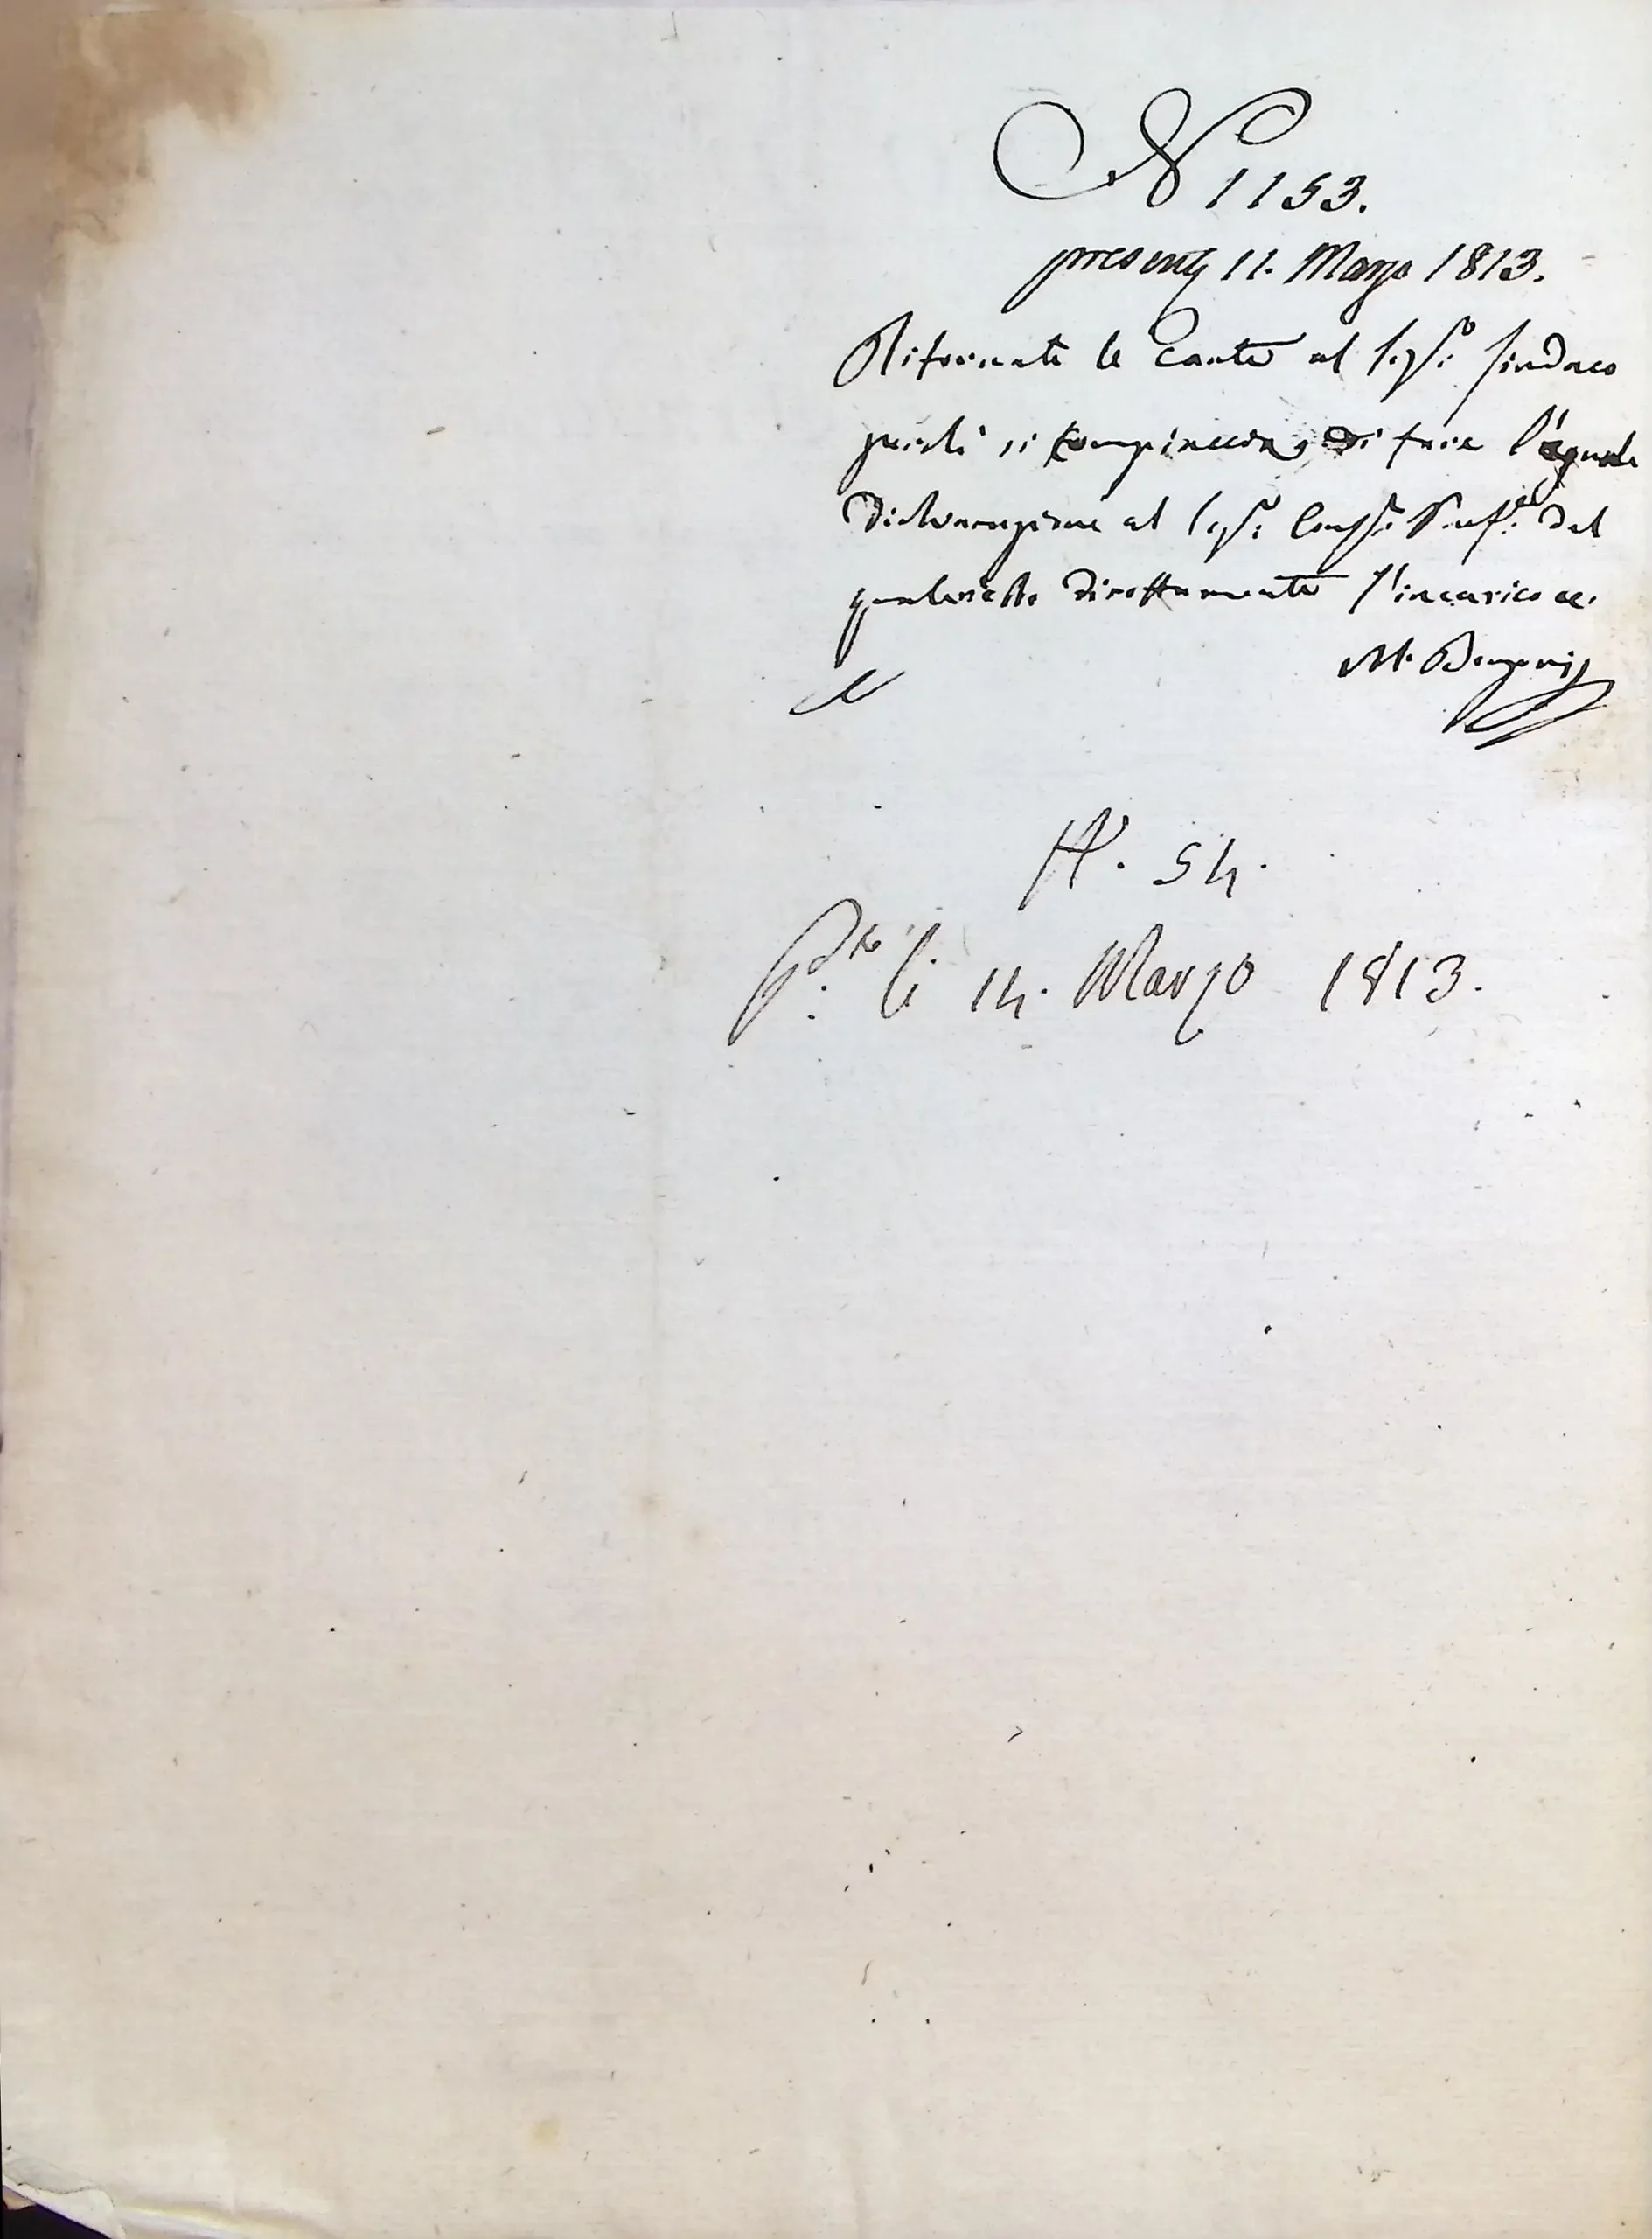 N 1153.
present 11. Marzo 1813.
Ritornate le Carte al Sigr. Sindaco
perchè si compiaccia di fare l'eguale
Dichiarazione al Sigr. Consr. Pref.o dal
quale ebbe direttamente l'incarico ec.
M.
N. 54.
Pto. li 14. Marzo 1813.